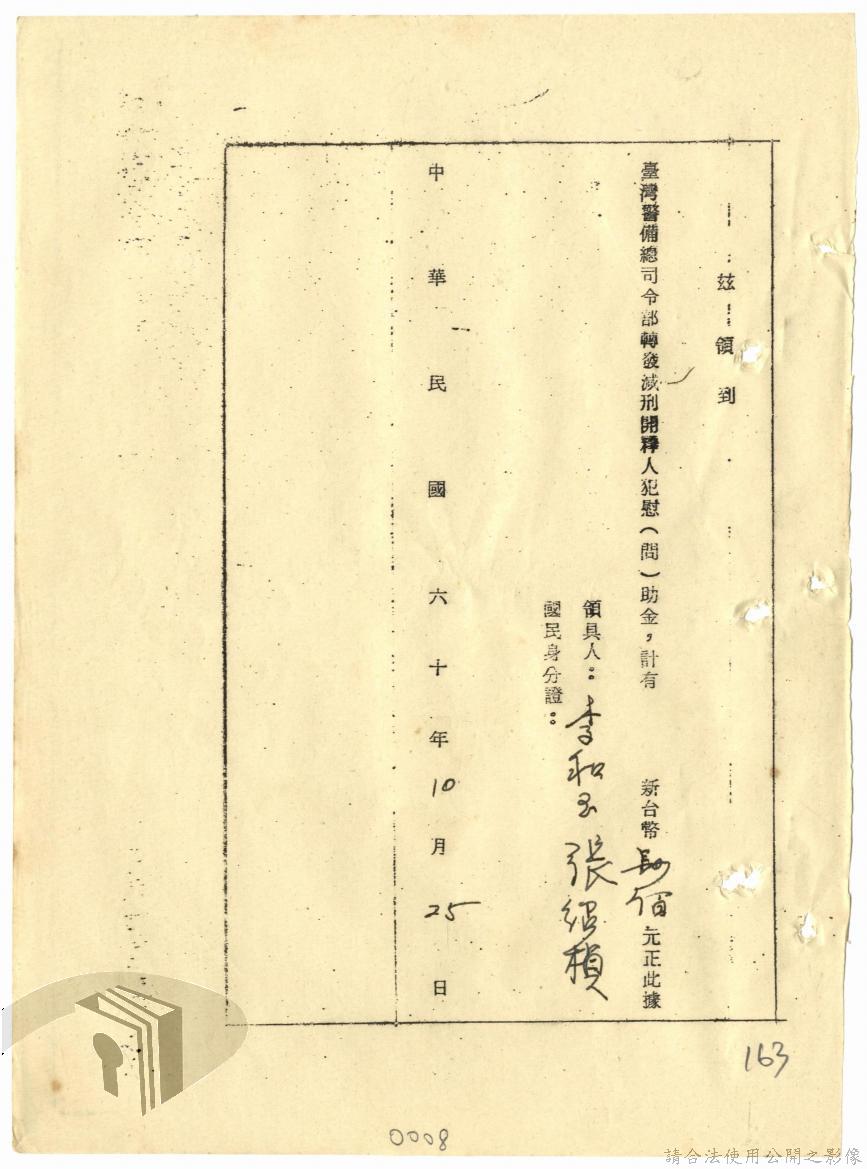 茲領到
臺灣警備總司令部轉發減刑開釋人犯慰(問)助金,計有 新台幣 佰元正此據
領具人:李和玉 張紹楨
國民身分證:
中華民國六十年10月25日
163
0008
請合法使用公開之影像